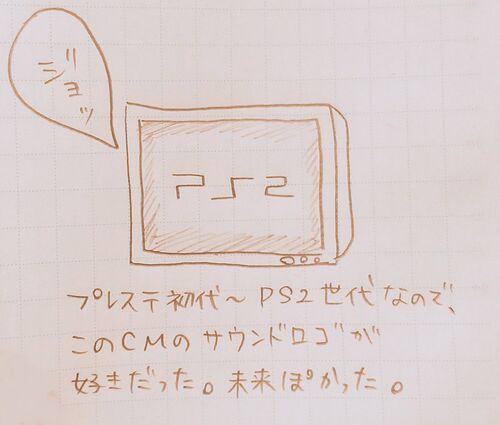 ジョッ
PS2
プレステ初代〜PS2世代なので、
このCMのサウンドロゴが
好きだった。未来ぽかった。